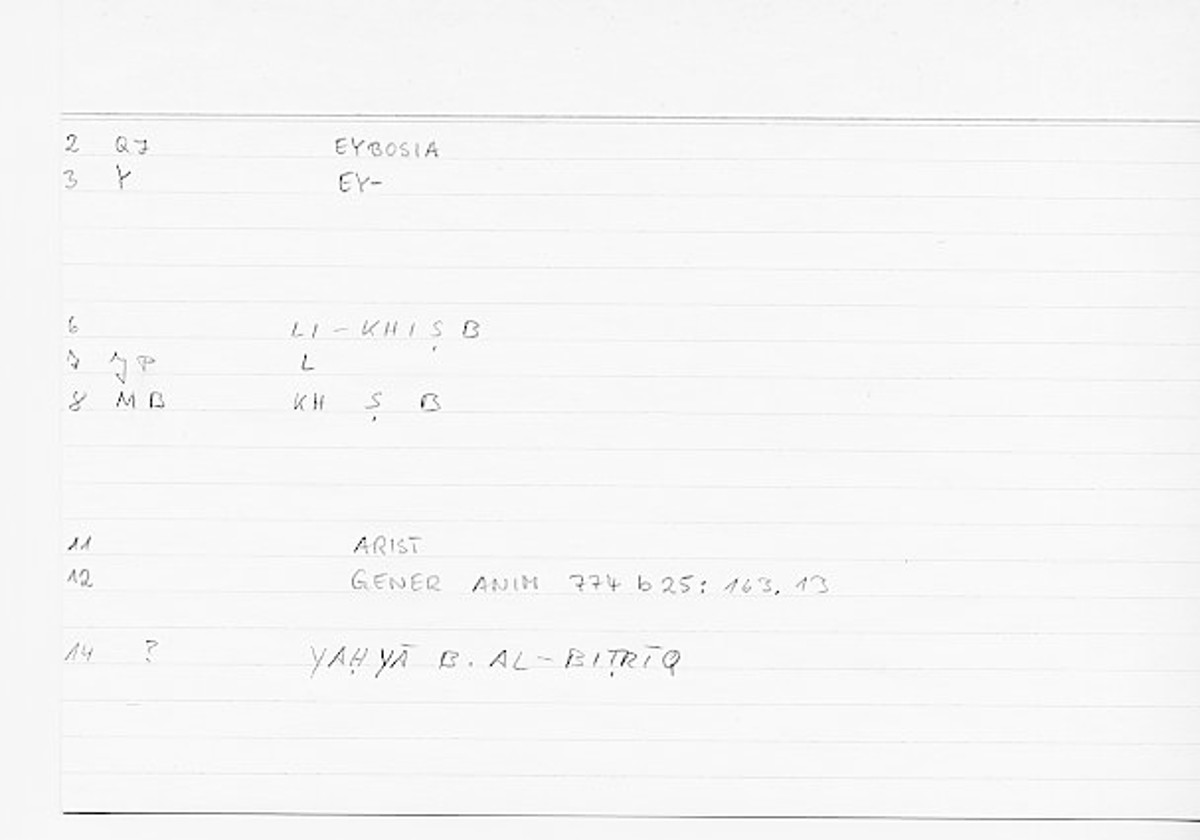 2 QJ EYBOSIA
3 Y EY-
6 LI-KHIṢB
7 JP L
8 MB KH Ṣ B
11 ARIST
12 GENER ANIM 774 b 25: 163, 13
14 ? YAḤYĀ B. AL-BIṬRĪQ